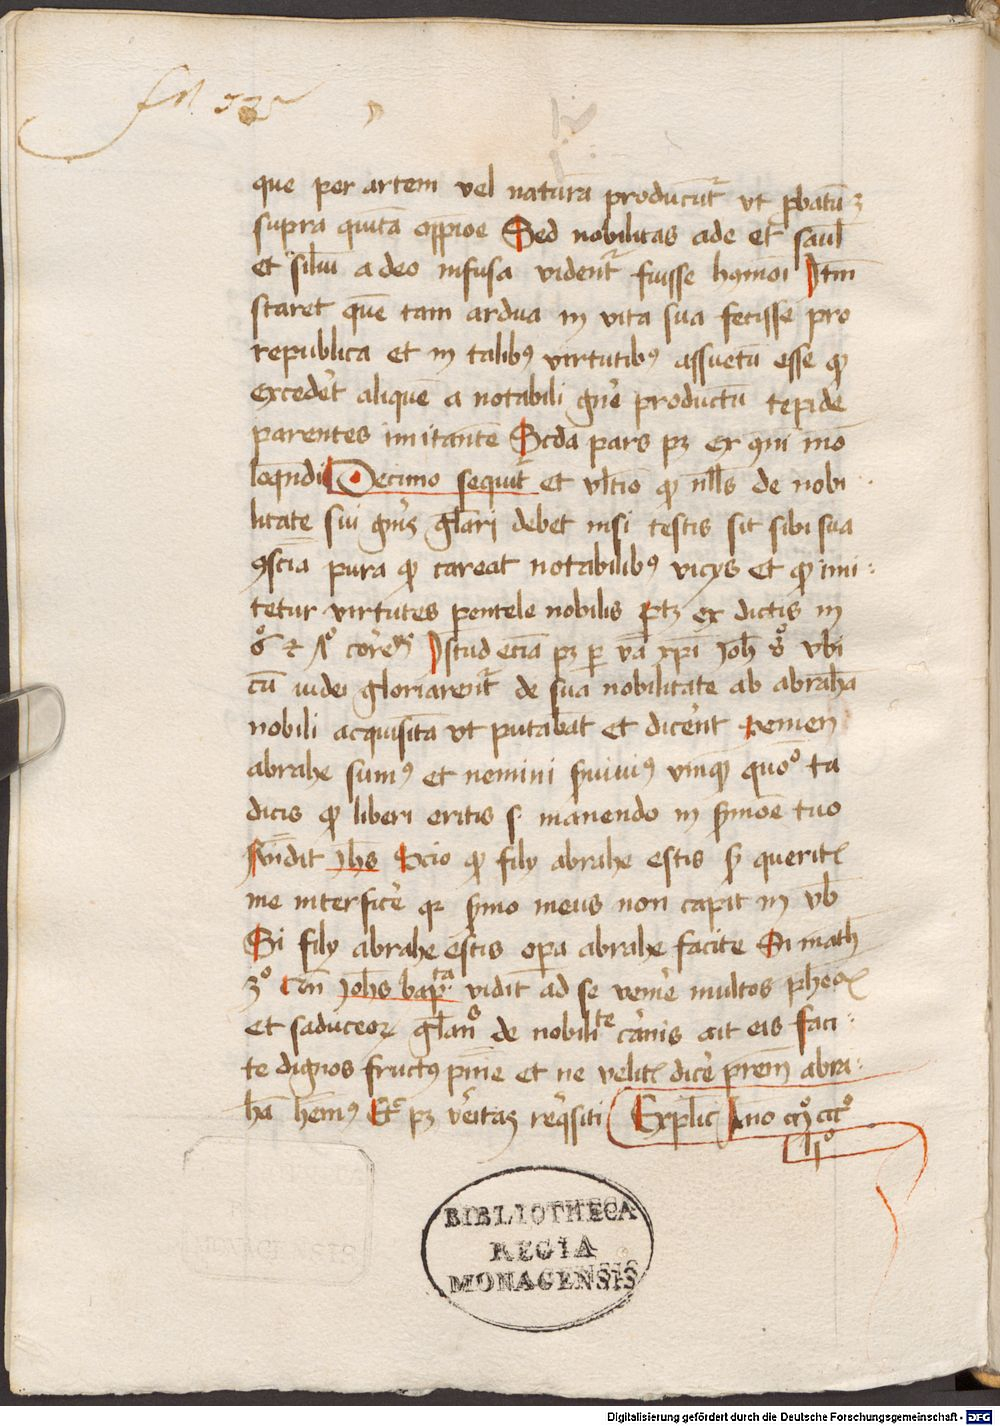 que per artem vel natura producuntr vt pbatu3
supra quita oppioe Sed nobilitas ade et saul
et silui a deo infusa videntr fuisse hꝯmoi Itm
staret que tam ardua in vita sua fecisse pro
republica et in talibꝯ virtutibꝯ assuetu esse qp
excedet alique a notabili gne productu tepide
parentes imitante Scda pars pz ex ꝯni mo
loqndi Decimo sequitr et vltio qp nlls de nobi
litate sui gnis glari debet nisi testis sit sibi sua
ꝯscia pura qp careat notabilibꝯ vicys et qp imi
tetur virtutes pentele nobilis ptz ex dictis in
Istud etia pz per xpi Joh 8o vbi
cu iudei gloriarentr de sua nobilitate ab abraha
nobili acquisita vt putabat et dicent Semen
abrahe sumꝯ et nemini suiuiꝯ vmqp quoo tu
dicis qp liberi eritis s manendo in smoe tuo
Rndit Jhs Scio qp fily abrahe estis s querit
me interfice qr smo meus non capit in vb
Si fily abrahe estis opa abrahe facite Si math
3o Johs bapta vidit ad se venie multos pheo
et saduceoꝝ glans de nobilite canis ait eis faci
te dignos fructꝯ pinie et ne velit dice prem abra
ha hemꝯ Et pz veritas reqsiti Explic Ano
BIBLIOTHECA
REGIA
MONACENSIS
Digitalisierung gefördert durch die Deutsche Forschungsgemeinschaft - DFG